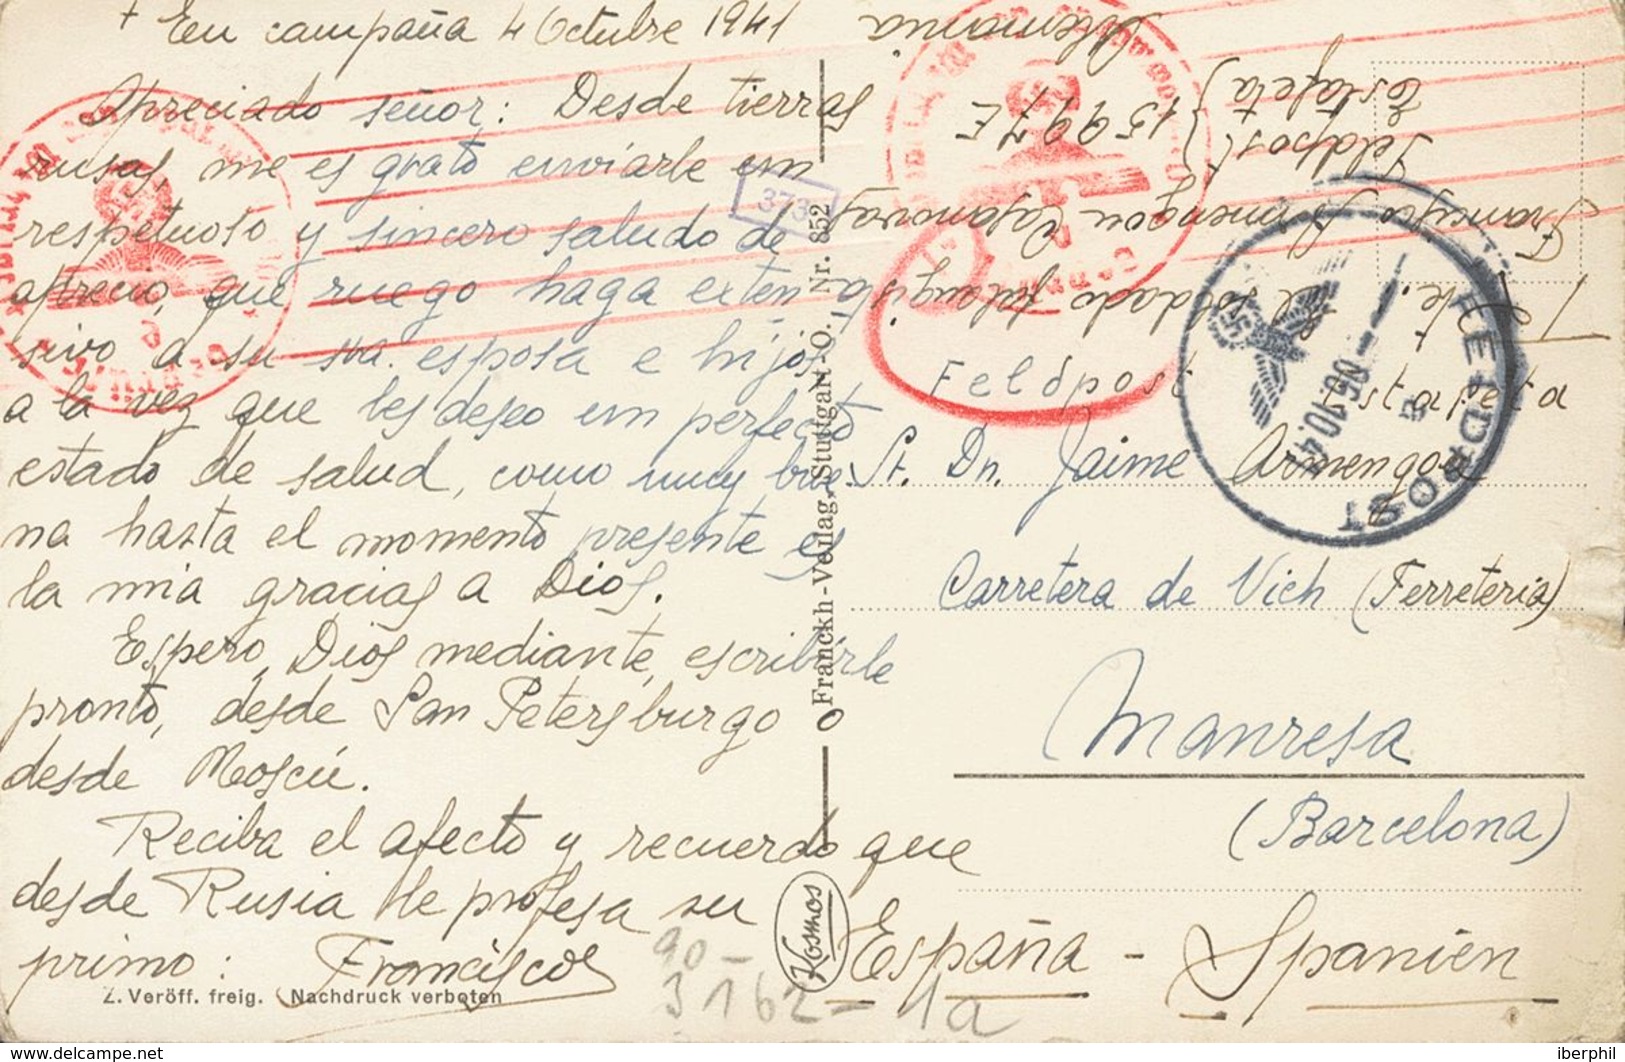 † En campaña 4 Octubre 1941
Apreciado señor: Desde tierras
rusas, me es grato enviarle un
respetuoso y sincero saludo de
aprecio, que ruego haga exten
sivo a su sra. esposa e hijos
a la vez que les deseo un perfecto
estado de salud, como muy bue-
na hasta el momento presente es
la mia gracias a Dios.
Espero, Dios mediante, escribirle
pronto, desde San Petersburgo o
desde Moscú.
Reciba el afecto y recuerdo que
desde Rusia le profesa su
primo: Francisco
Z. Veröff. freig. Nachdruck verboten
90-
3162-1a
373
Franckh-Verlag, Stuttgart-O., Nr. 852
Kosmos
Rte. el soldado falangista
Francisco Armengou Casanovas
Feldpost
Estafeta } 15997E
Alemania
Feldpost
FELDPOST
a
06.10.41
Sr. Dn. Jaime Armengou
Carretera de Vich (Ferreteria)
Manresa
(Barcelona)
España - Spanien
iberphil
www.delcampe.net